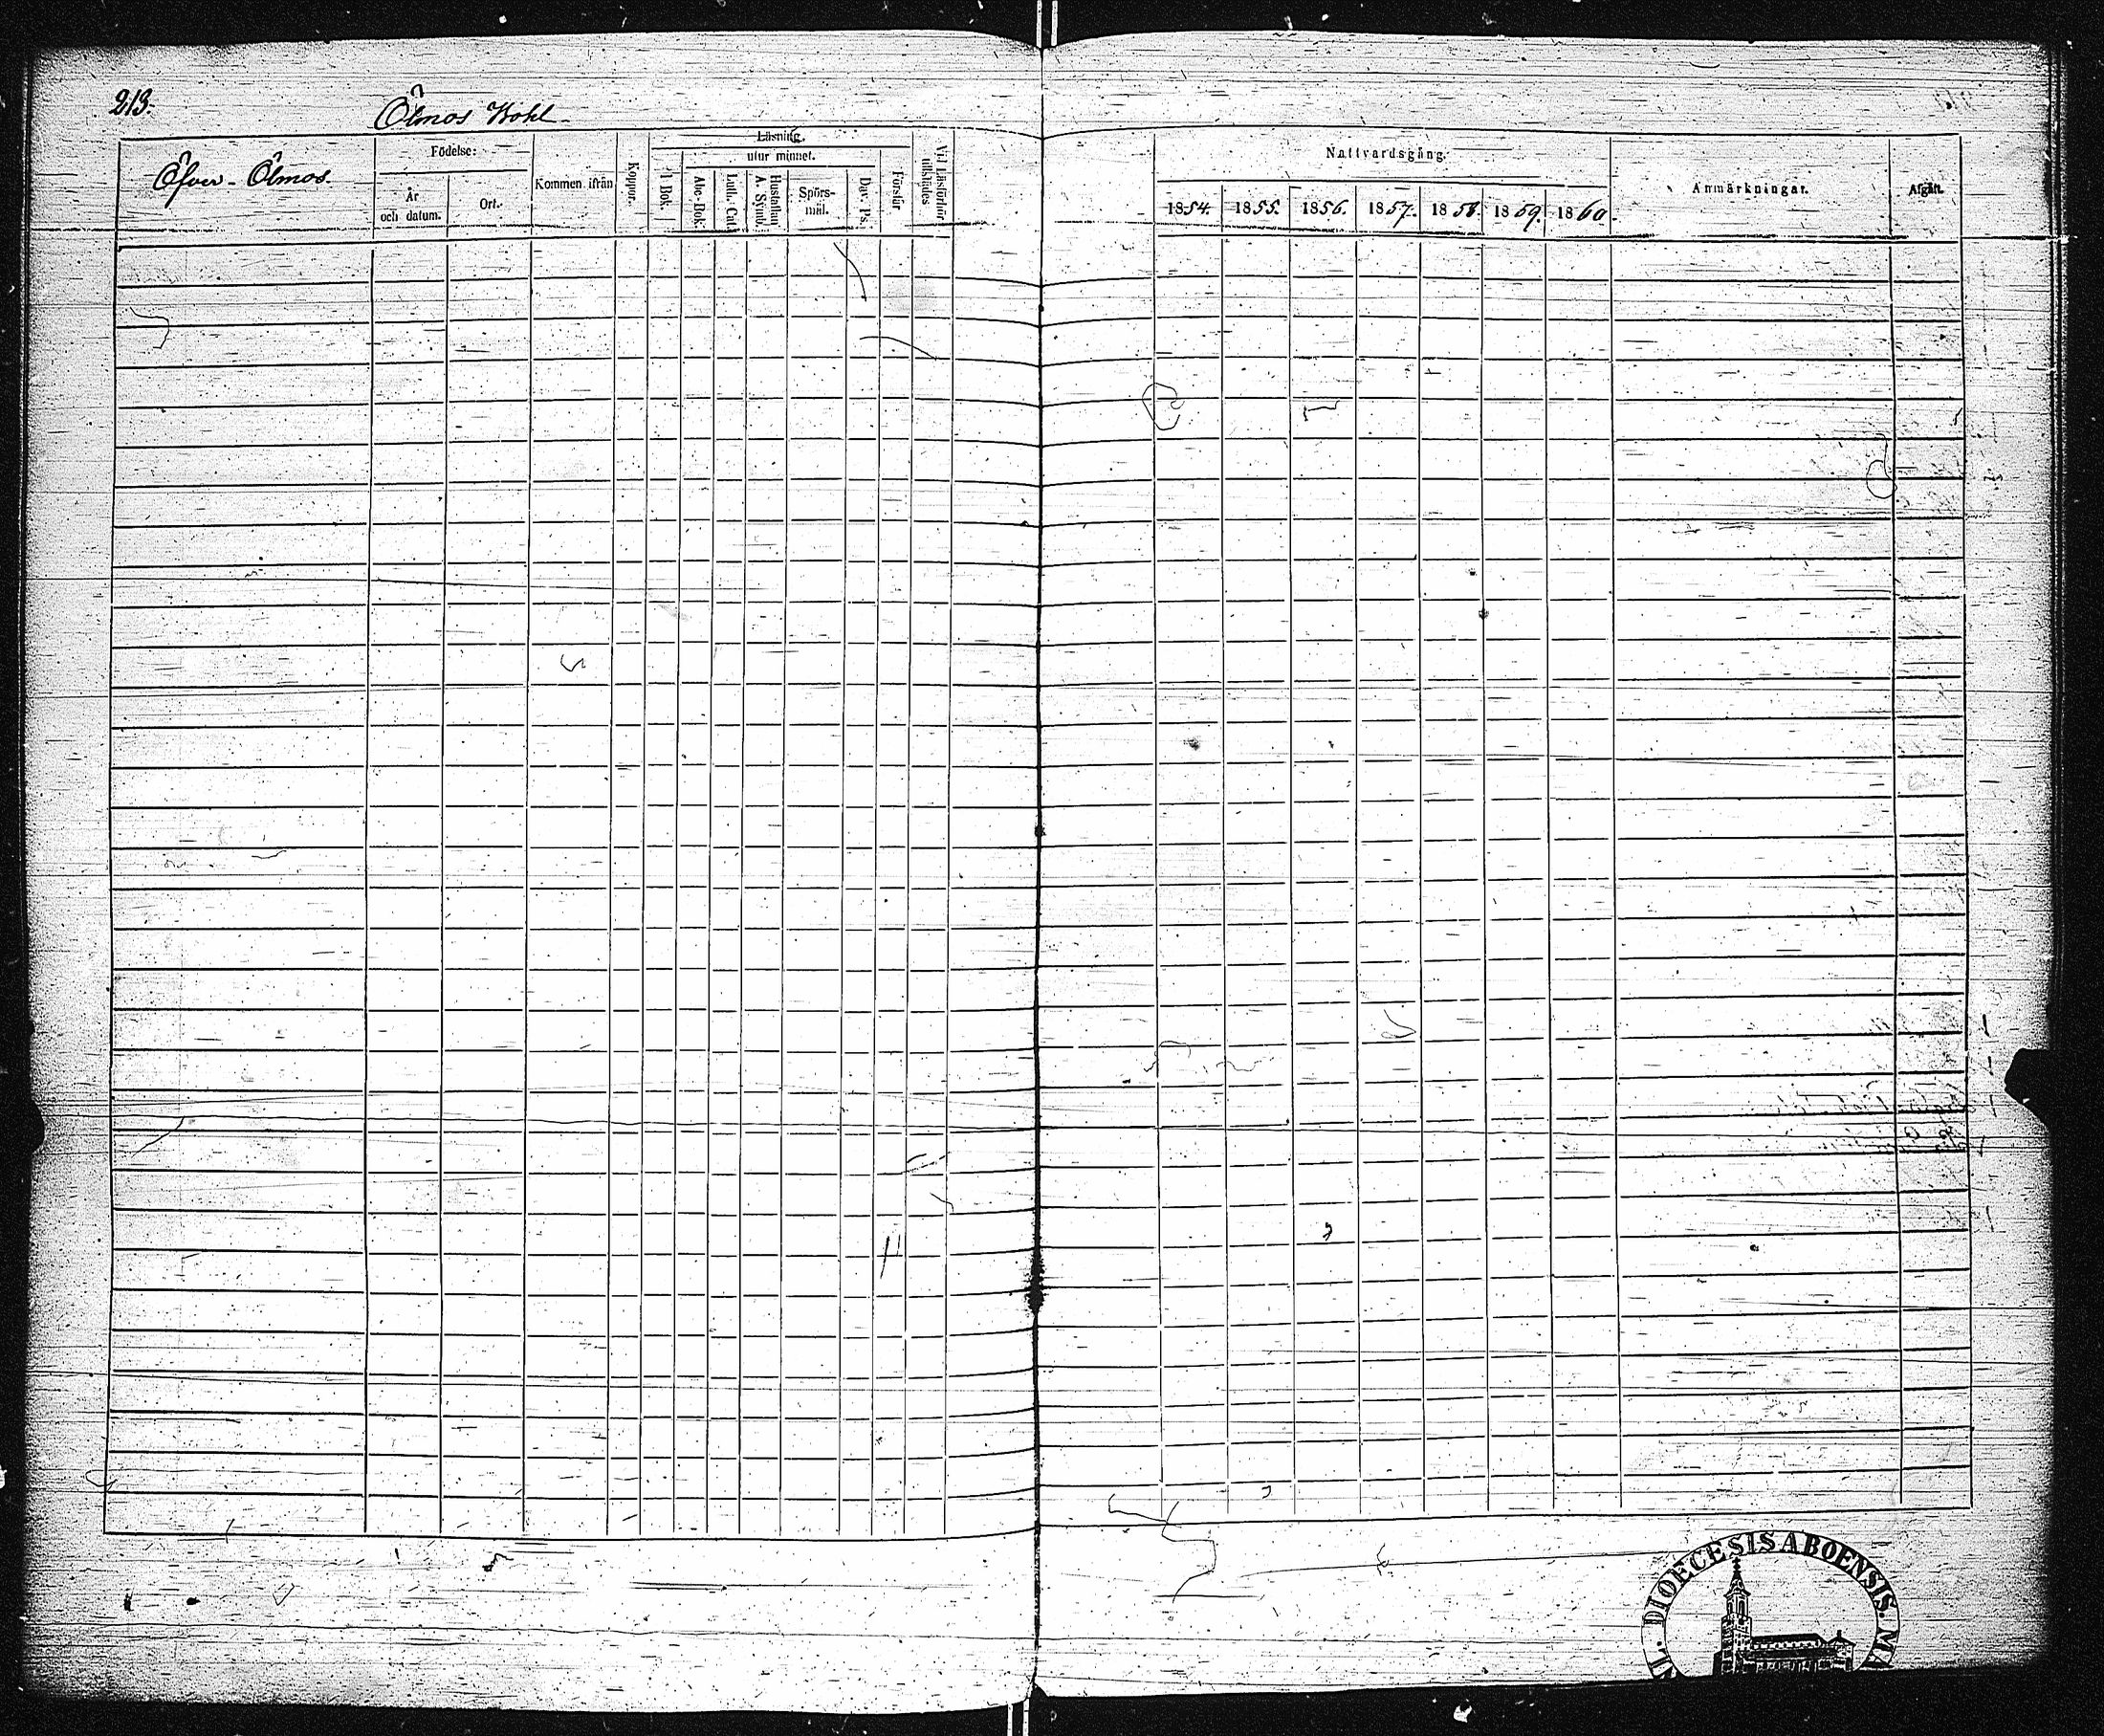 213.
Ölmos Bohl
Öfver-Ölmos.
Födelse:
År
och datum.
Ort.
Kommen ifrån
Koppor.
Läsning.
utur minnet.
I Bok.
Abc-Bok.
Luth. Cat.
Hustaflan
A. Symb.
Spörs-
mål.
Dav. Ps.
Förstår
Vid Läsförhör
tillstädes
Nattvardsgång.
1854. 1855. 1856. 1857. 1858. 1859. 1860.
Anmärkningar.
Afgått.
DIOECESIS ABOENSIS. M